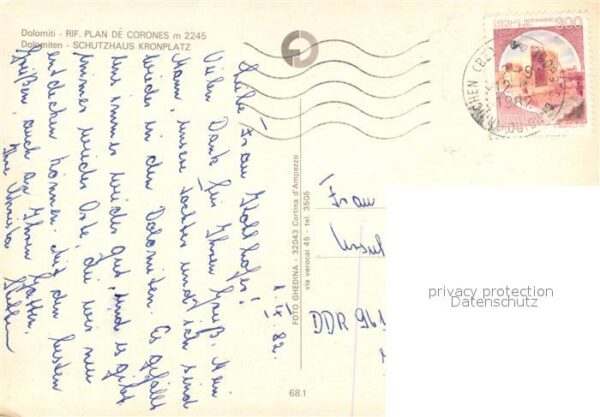 Dolomiti - RIF. PLAN DE CORONES m 2245
Dolomiten - SCHUTZHAUS KRONPLATZ
1. IX. 82.
Liebe Frau
Vielen Dank für Ihren Gruß. Mein
Mann, unsere Tochter und ich sind
wieder in den Dolomiten. Es gefällt
uns immer wieder gut, und es gibt
immer wieder Orte, die wir neu
entdecken können. Mit den besten
Grüßen auch an Ihren Gatten.
Ihre Christa
FOTO GHEDINA - 32043 Cortina d'Ampezzo
via verocai 45 - tel. 3505
68.1
300
ITALIA
1982
Frau
Ursul
DDR 961
privacy protection
Datenschutz